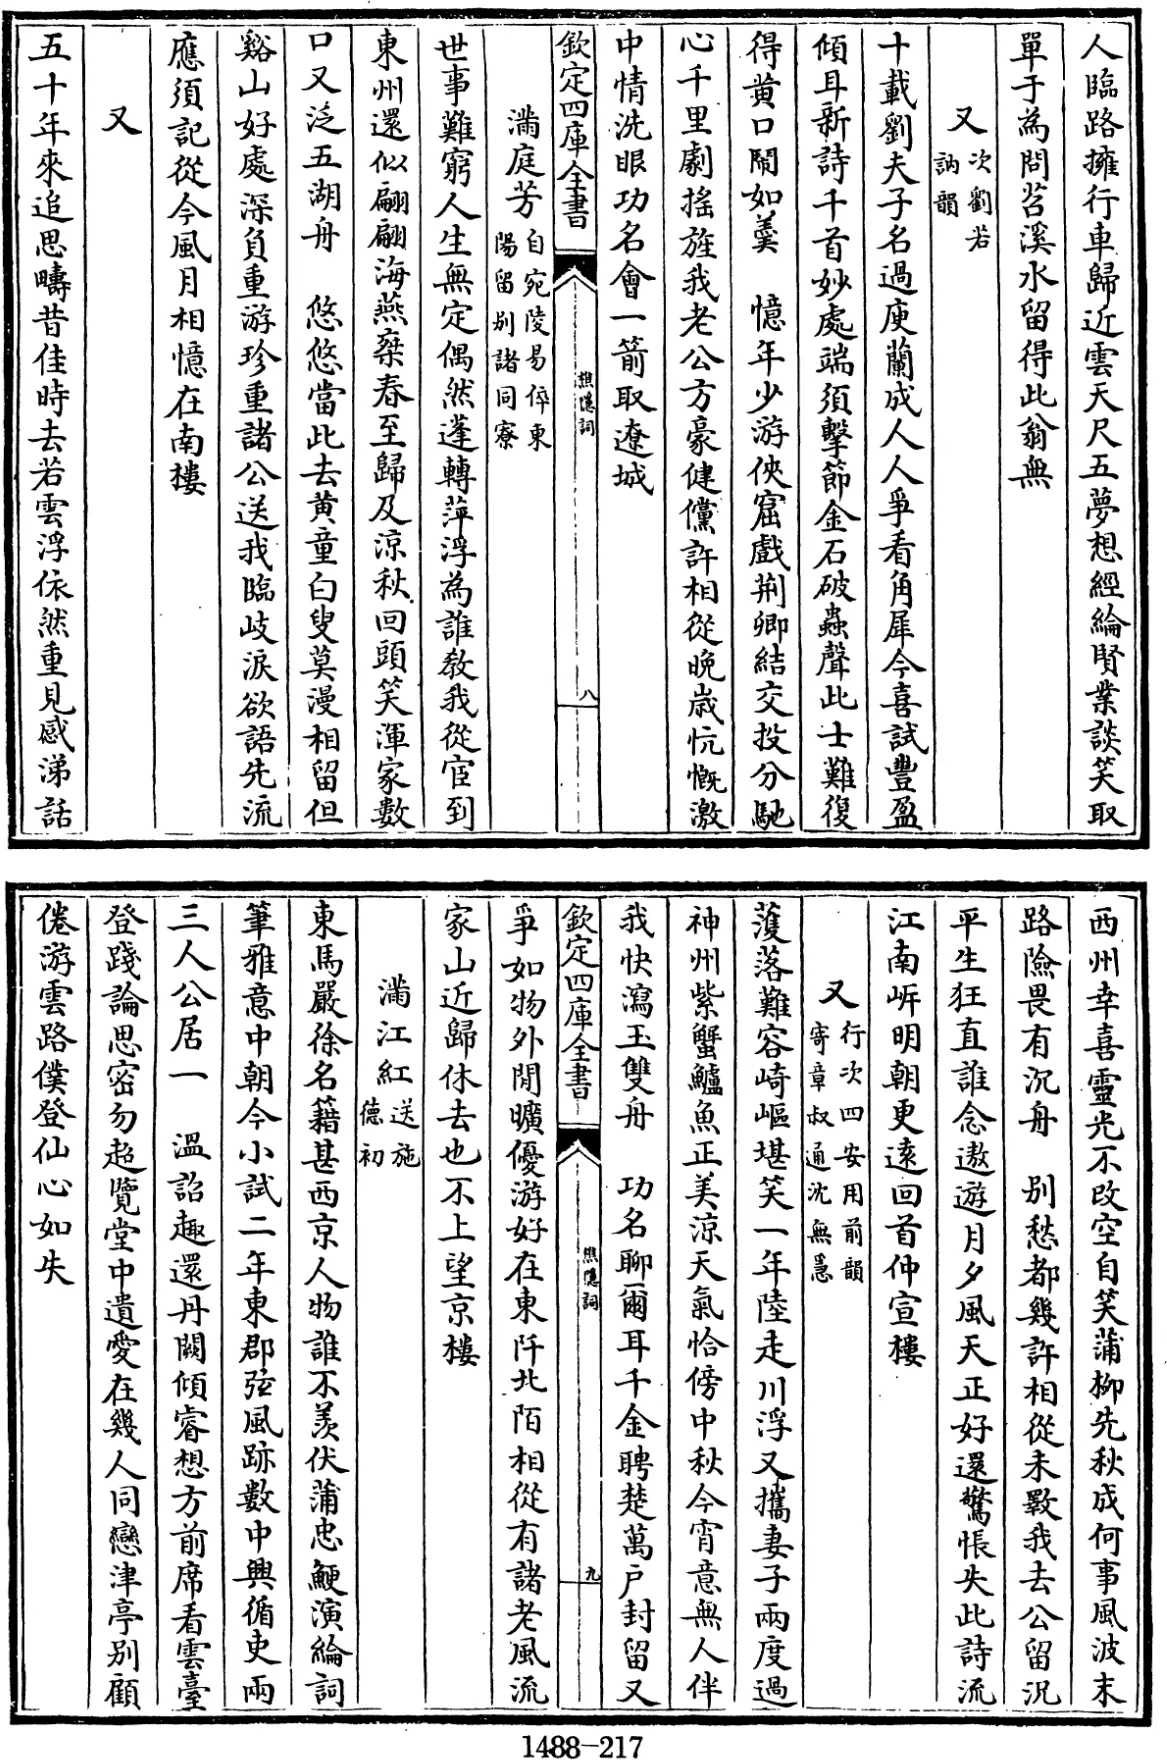 人臨路擁行車歸近雲天尺五夢想經綸賢業談笑取
單于為問苕溪水留得此翁無
又 次劉若訥韻
十載劉夫子名過庾蘭成人人爭看角犀今喜試豐盈
傾耳新詩千首妙處端須擊節金石破蟲聲此士難復
得黄口鬧如羹 憶年少游俠窟戲荆卿結交投分馳
心千里劇搖旌我老公方豪健儻許相從晩歲忼慨激
中情洗眼功名會一箭取遼城
欽定四庫全書 樵隠詞 八
滿庭芳 自宛陵易倅東陽留別諸同寮
世事難窮人生無定偶然蓬轉萍浮為誰教我從宦到
東州還似翩翩海燕乘春至歸及涼秋回頭笑渾家數
口又泛五湖舟 悠悠當此去黄童白叟莫漫相留但
谿山好處深負重游珍重諸公送我臨岐淚欲語先流
應須記從今風月相憶在南樓
又
五十年來追思疇昔佳時去若雲浮依然重見感涕話
西州幸喜靈光不改空自笑蒲柳先秋成何事風波末
路險畏有沉舟 别愁都幾許相從未斁我去公留況
平生狂直誰念遨遊月夕風天正好還驚悵失此詩流
江南岍明朝更遠回首仲宣樓
又 行次四安用前韻寄章叔通沈無隠
濩落難容崎嶇堪笑一年陸走川浮又攜妻子兩度過
神州紫蟹鱸魚正美涼天氣恰傍中秋今宵意無人伴
我快瀉玉雙舟 功名聊爾耳千金聘楚萬户封留又
爭如物外閒曠優游好在東阡北陌相從有諸老風流
家山近歸休去也不上望京樓
欽定四庫全書 樵隠詞 九
滿江紅 送施德初
東馬嚴徐名籍甚西京人物誰不羨伏蒲忠鯁演綸詞
筆雅意中朝今小試二年東郡弦風跡數中興循吏兩
三人公居一 溫詔趣還丹闕傾睿想方前席看雲臺
登踐論思密勿超覽堂中遺愛在幾人同戀津亭别顧
倦游雲路僕登仙心如失
1488-217